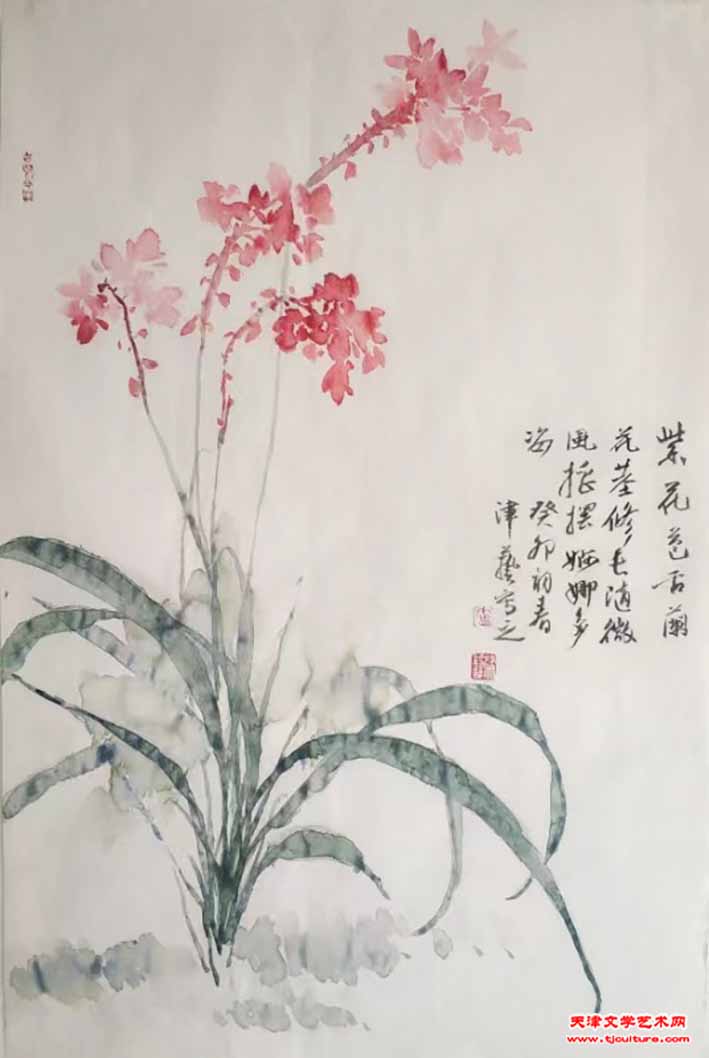 紫花苞舌蘭
花莖修長隨微
風搖擺婀娜多
姿 癸卯初春
津藝寫之
天津文学艺术网
www.tjculture.com